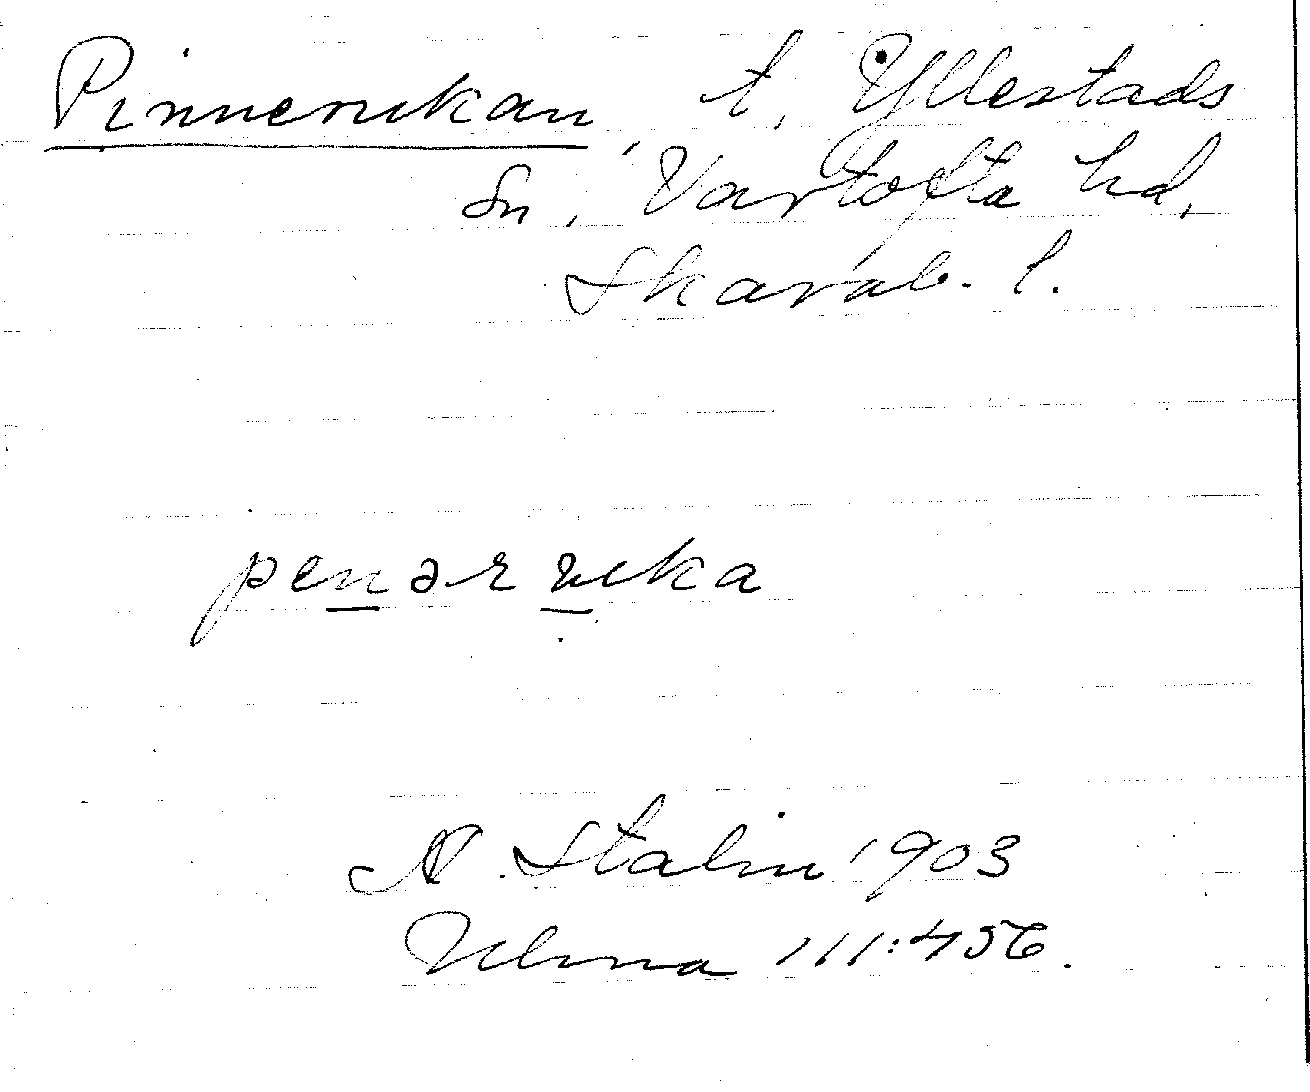 Pinnerukan, t. Yllestads
sn, Vartofta hd,
Skarab. l.
penəruka
N. Stalin 1903
Ulma 111:456.